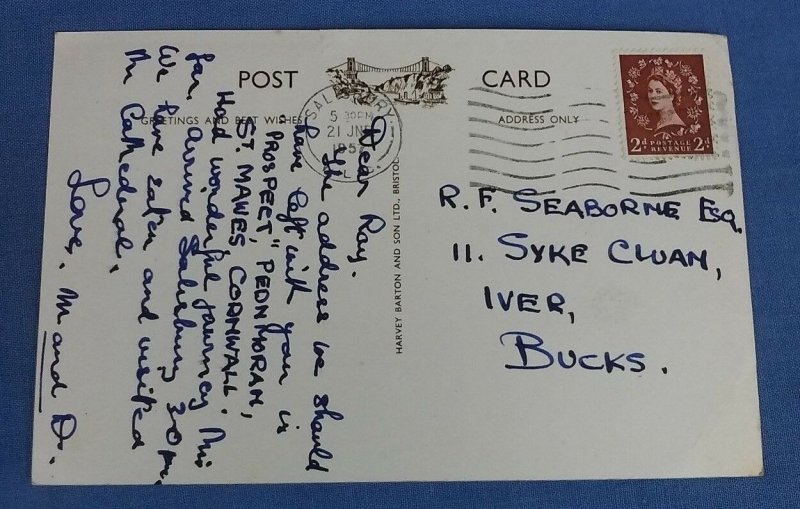 POST CARD
GREETINGS AND BEST WISHES
ADDRESS ONLY
SALISBURY
5 30PM
21 JNE
195
2D POSTAGE REVENUE 2D
HARVEY BARTON AND SON LTD., BRISTOL
Dear Ray.
The address we should
have left with you is
"PROSPECT," PEDNMORAN,
ST. MAWES, CORNWALL.
Had wonderful journey this
far. Arrived Salisbury 3.0 pm.
We have eaten and visited
the Cathedral.
Love, M and D.
R. F. SEABORNE ESQ.
11. SYKE CLUAN,
IVER,
BUCKS.